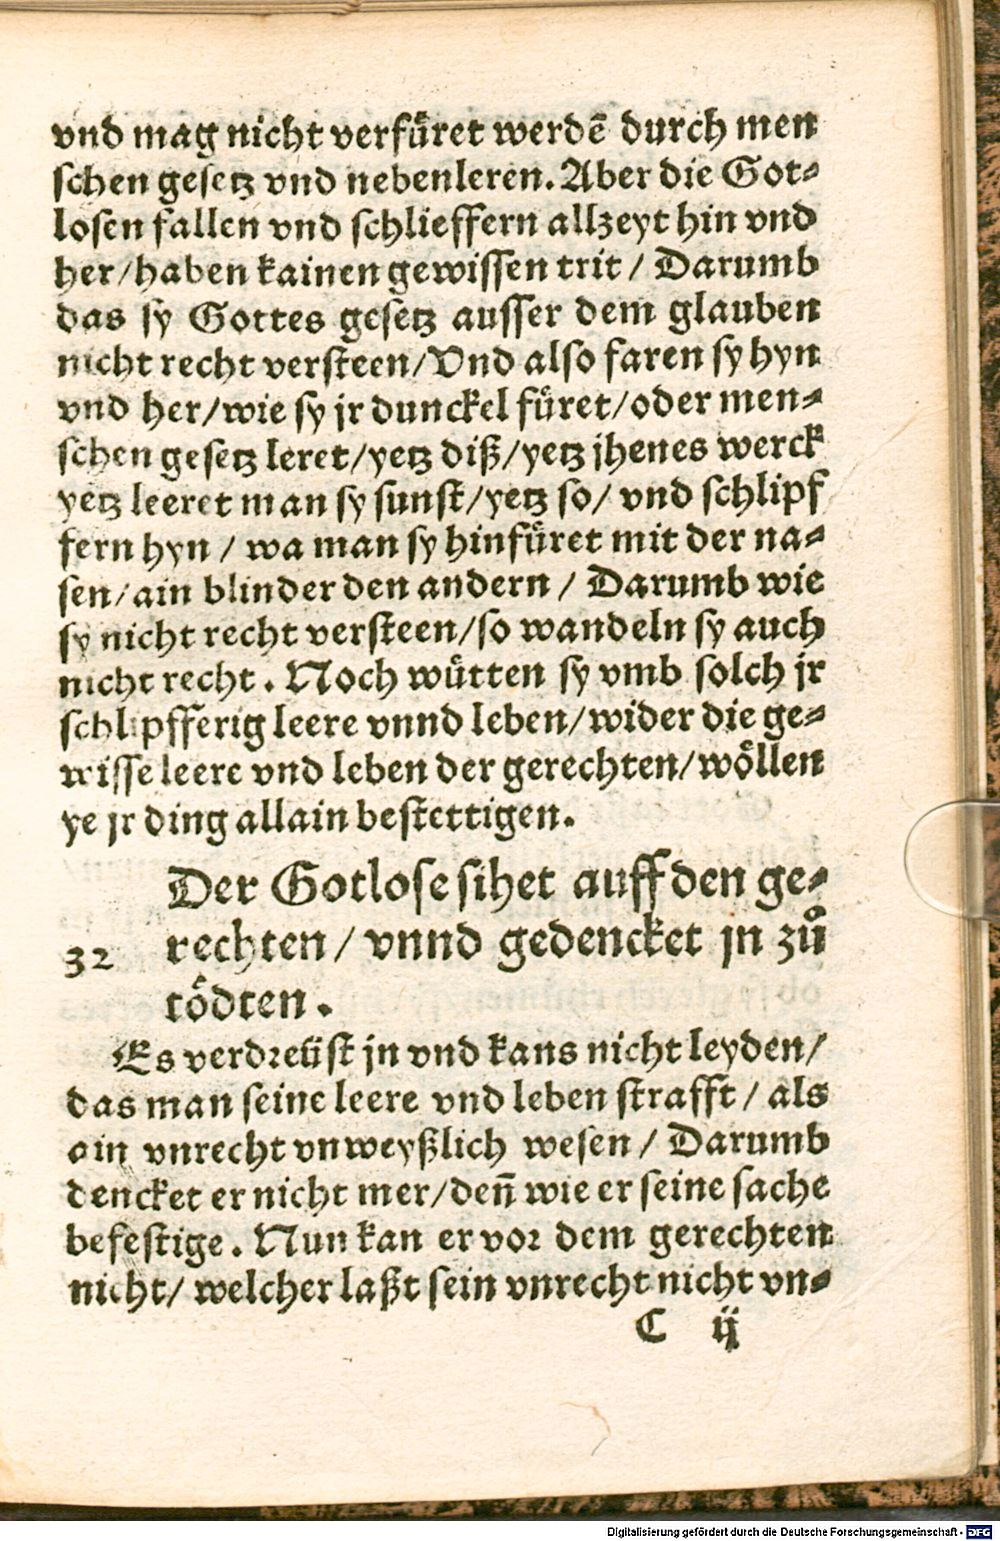 vnd mag nicht verfüret werdē durch men
schen gesetz vnd nebenleren. Aber die Got-
losen fallen vnd schlieffern allzeyt hin vnd
her/haben kainen gewissen trit / Darumb
das sy Gottes gesetz ausser dem glauben
nicht recht versteen/Vnd also faren sy hyn
vnd her/wie sy jr dunckel füret/oder men-
schen gesetz leret/yetz diß/yetz jhenes werck
yetz leeret man sy sunst/yetz so/ vnd schlipf
fern hyn / wa man sy hinfüret mit der na-
sen/ain blinder den andern / Darumb wie
sy nicht recht versteen/so wandeln sy auch
nicht recht. Noch wütten sy vmb solch jr
schlipfferig leere vnnd leben/wider die ge-
wisse leere vnd leben der gerechten/wöllen
ye jr ding allain bestettigen.
Der Gotlose sihet auff den ge-
32 rechten / vnnd gedencket jn zů
tödten.
Es verdreüst jn vnd kans nicht leyden/
das man seine leere vnd leben strafft / als
ain vnrecht vnweyßlich wesen / Darumb
dencket er nicht mer/deñ wie er seine sache
befestige. Nun kan er vor dem gerechten
nicht/ welcher laßt sein vnrecht nicht vn-
C ij
Digitalisierung gefördert durch die Deutsche Forschungsgemeinschaft - DFG